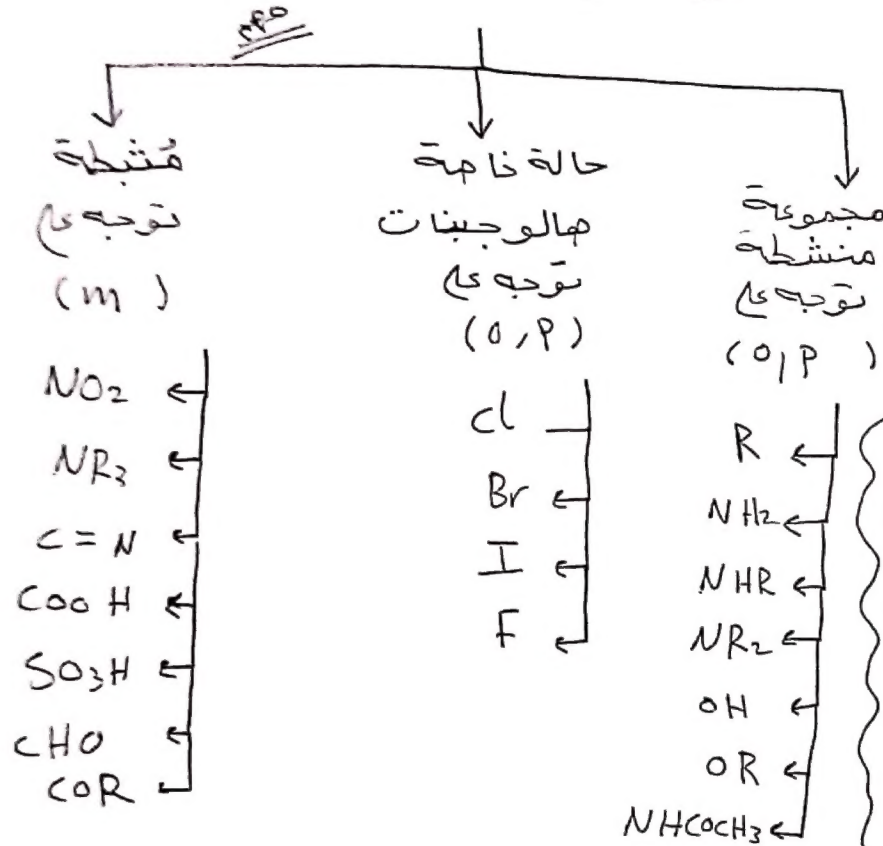 مهم
مجموعة
منشطة
توجه على
(o,p)
R
NH2
NHR
NR2
OH
OR
NHCOCH3
حالة خاصة
هالوجينات
توجه على
(o,p)
Cl
Br
I
F
مُثبطة
توجه على
(m)
NO2
NR3
C=N
COOH
SO3H
CHO
COR